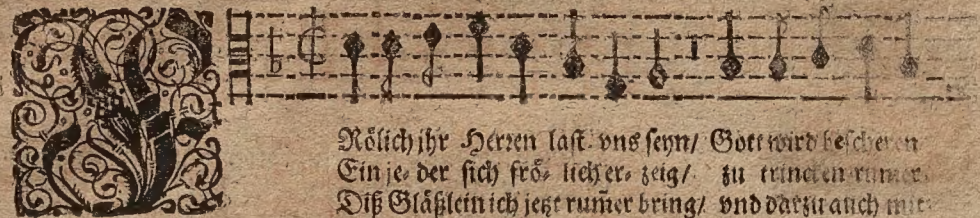 FRölich jhr Herren last vns seyn/ Gott wird bescheren
Ein je⸗ der sich frö⸗ lich er⸗ zeig/ zu trincken rum̃er
Diß Gläßlein ich jetzt rum̃er bring/ vnd darzu auch mit⸗